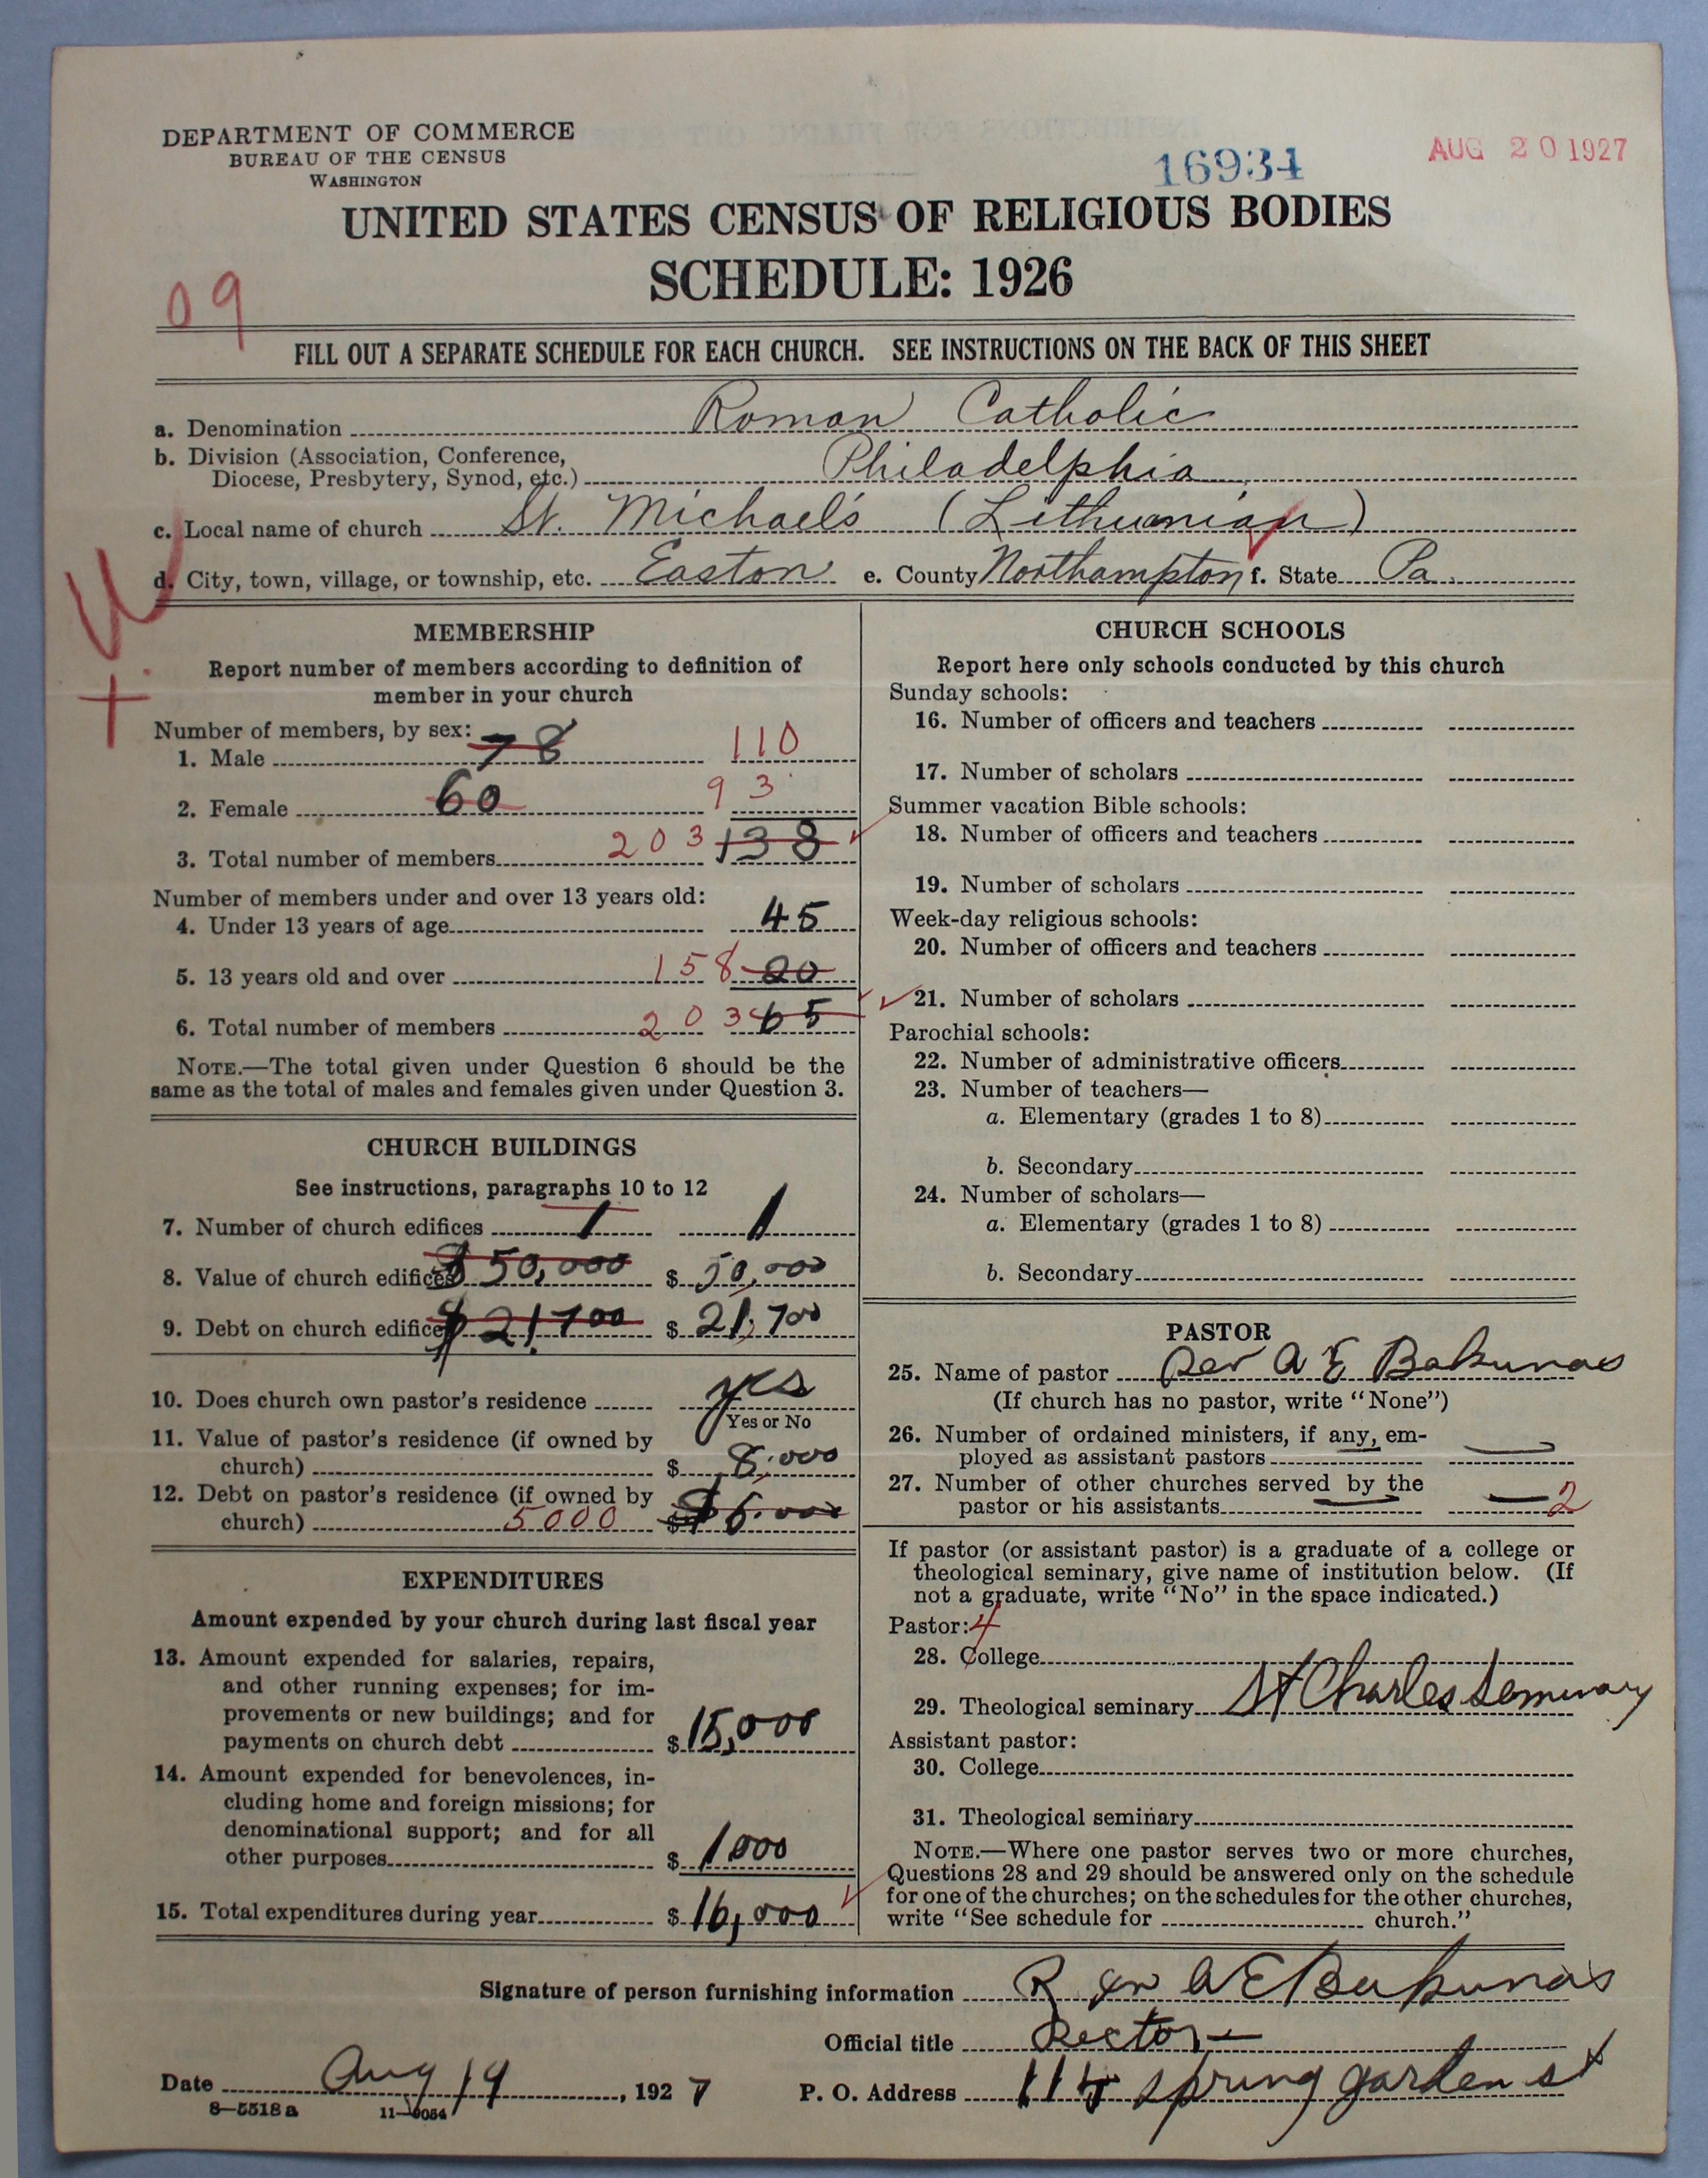 DEPARTMENT OF COMMERCE
BUREAU OF THE CENSUS
WASHINGTON
16934
AUG 20 1927
UNITED STATES CENSUS OF RELIGIOUS BODIES
SCHEDULE: 1926
09
FILL OUT A SEPARATE SCHEDULE FOR EACH CHURCH. SEE INSTRUCTIONS ON THE BACK OF THIS SHEET
a. Denomination Roman Catholic
b. Division (Association, Conference,
Diocese, Presbytery, Synod, etc.) Philadelphia
c. Local name of church St. Michael's (Lithuanian)
d. City, town, village, or township, etc. Easton e. County Northampton f. State Pa.
MEMBERSHIP
Report number of members according to definition of
member in your church
Number of members, by sex:
1. Male 78 110
2. Female 60 93
3. Total number of members 203 138
Number of members under and over 13 years old:
4. Under 13 years of age 45
5. 13 years old and over 158 20
6. Total number of members 203 65
NOTE.—The total given under Question 6 should be the
same as the total of males and females given under Question 3.
CHURCH BUILDINGS
See instructions, paragraphs 10 to 12
7. Number of church edifices 1 1
8. Value of church edifices $50,000 $ 50,000
9. Debt on church edifices $21,700 $ 21,700
10. Does church own pastor's residence yes
Yes or No
11. Value of pastor's residence (if owned by
church) $ 8,000
12. Debt on pastor's residence (if owned by
church) 5000 $6,000
EXPENDITURES
Amount expended by your church during last fiscal year
13. Amount expended for salaries, repairs,
and other running expenses; for im-
provements or new buildings; and for
payments on church debt $ 15,000
14. Amount expended for benevolences, in-
cluding home and foreign missions; for
denominational support; and for all
other purposes $ 1000
15. Total expenditures during year $ 16,000
CHURCH SCHOOLS
Report here only schools conducted by this church
Sunday schools:
16. Number of officers and teachers
17. Number of scholars
Summer vacation Bible schools:
18. Number of officers and teachers
19. Number of scholars
Week-day religious schools:
20. Number of officers and teachers
21. Number of scholars
Parochial schools:
22. Number of administrative officers
23. Number of teachers—
a. Elementary (grades 1 to 8)
b. Secondary
24. Number of scholars—
a. Elementary (grades 1 to 8)
b. Secondary
PASTOR
25. Name of pastor Rev A E Bakunas
(If church has no pastor, write "None")
26. Number of ordained ministers, if any, em-
ployed as assistant pastors —
27. Number of other churches served by the
pastor or his assistants — 2
If pastor (or assistant pastor) is a graduate of a college or
theological seminary, give name of institution below. (If
not a graduate, write "No" in the space indicated.)
Pastor: 4
28. College
29. Theological seminary St Charles Seminary
Assistant pastor:
30. College
31. Theological seminary
NOTE.—Where one pastor serves two or more churches,
Questions 28 and 29 should be answered only on the schedule
for one of the churches; on the schedules for the other churches,
write "See schedule for church."
Signature of person furnishing information Rev A E Bakunas
Official title Rector
Date Aug 19, 1927 P. O. Address 114 spring garden st
8—5518 a 11—9054